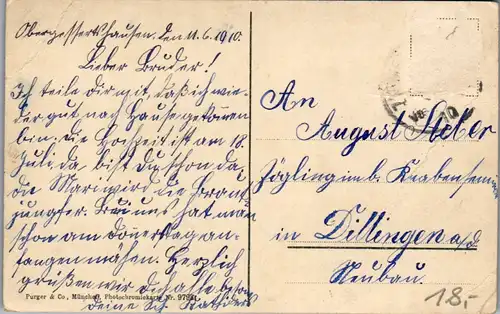 Obergessertshausen, den 11.6.1910.
Lieber Bruder!
Ich teile Dir mit, daß ich wie-
der gut nach Hause gekommen
bin. die Hochzeit ist am 18.
Juli, da bist Du schon da,
die Mari wird die Braut-
jungfer. Bei uns hat man
schon am Donnerstag an-
fangen mähen. Herzlich
grüßen wir Dich alle
Deine
An
August
Zögling im b. Knabensemin
in Dillingen a/d
Neubau.
Purger & Co., München, Photochromiekarte Nr.
18.-